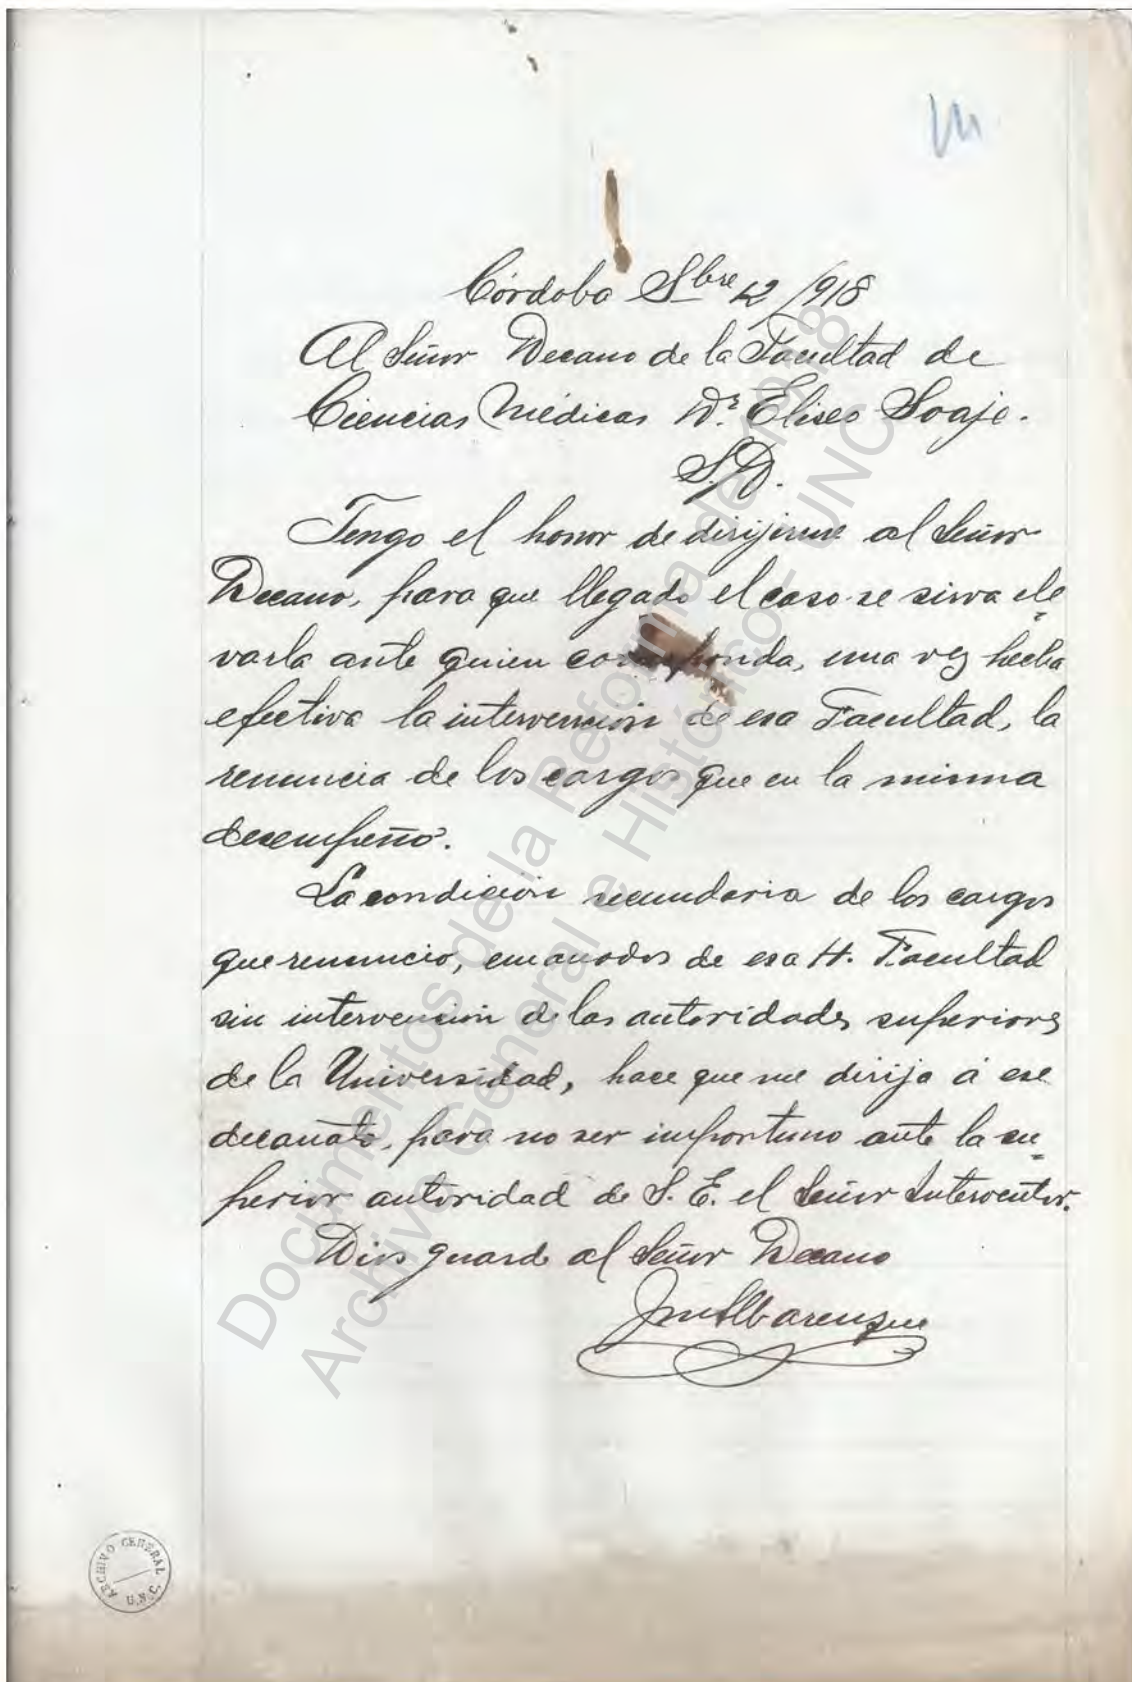 Córdoba Sbre 12/918
Al Señor Decano de la Facultad de
Ciencias Médicas Dr. Eliseo Soaje.
S/D.
Tengo el honor de dirijirme al Señor
Decano, para que llegado el caso se sirva ele=
varla ante quien corresponda, una vez hecha
efectiva la intervención de esa Facultad, la
renuncia de los cargos que en la misma
desempeño.
La condición secundaria de los cargos
que renuncio, emanados de esa H. Facultad
sin intervención de las autoridades superiores
de la Universidad, hace que me dirija á ese
decanato, para no ser importuno ante la su=
perior autoridad de S. E. el Señor Interventor.
Dios guard al Señor Decano
Documentos de la Reforma de 1918
Archivo General e Histórico - UNC
ARCHIVO GENERAL
U.N.C.